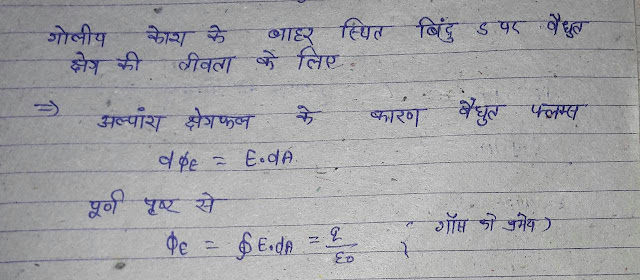 गोलीय कोश के बाहर स्थित बिंदु S पर वैधुत
क्षेत्र की तीवता के लिए
⇒ अल्पांश क्षेत्रफल के कारण वैधुत फ्लक्स
dΦE = E.dA
पूर्ण पृष्ट से
ΦE = ∮E.dA = q/ε0 { गॉस की प्रमेय )